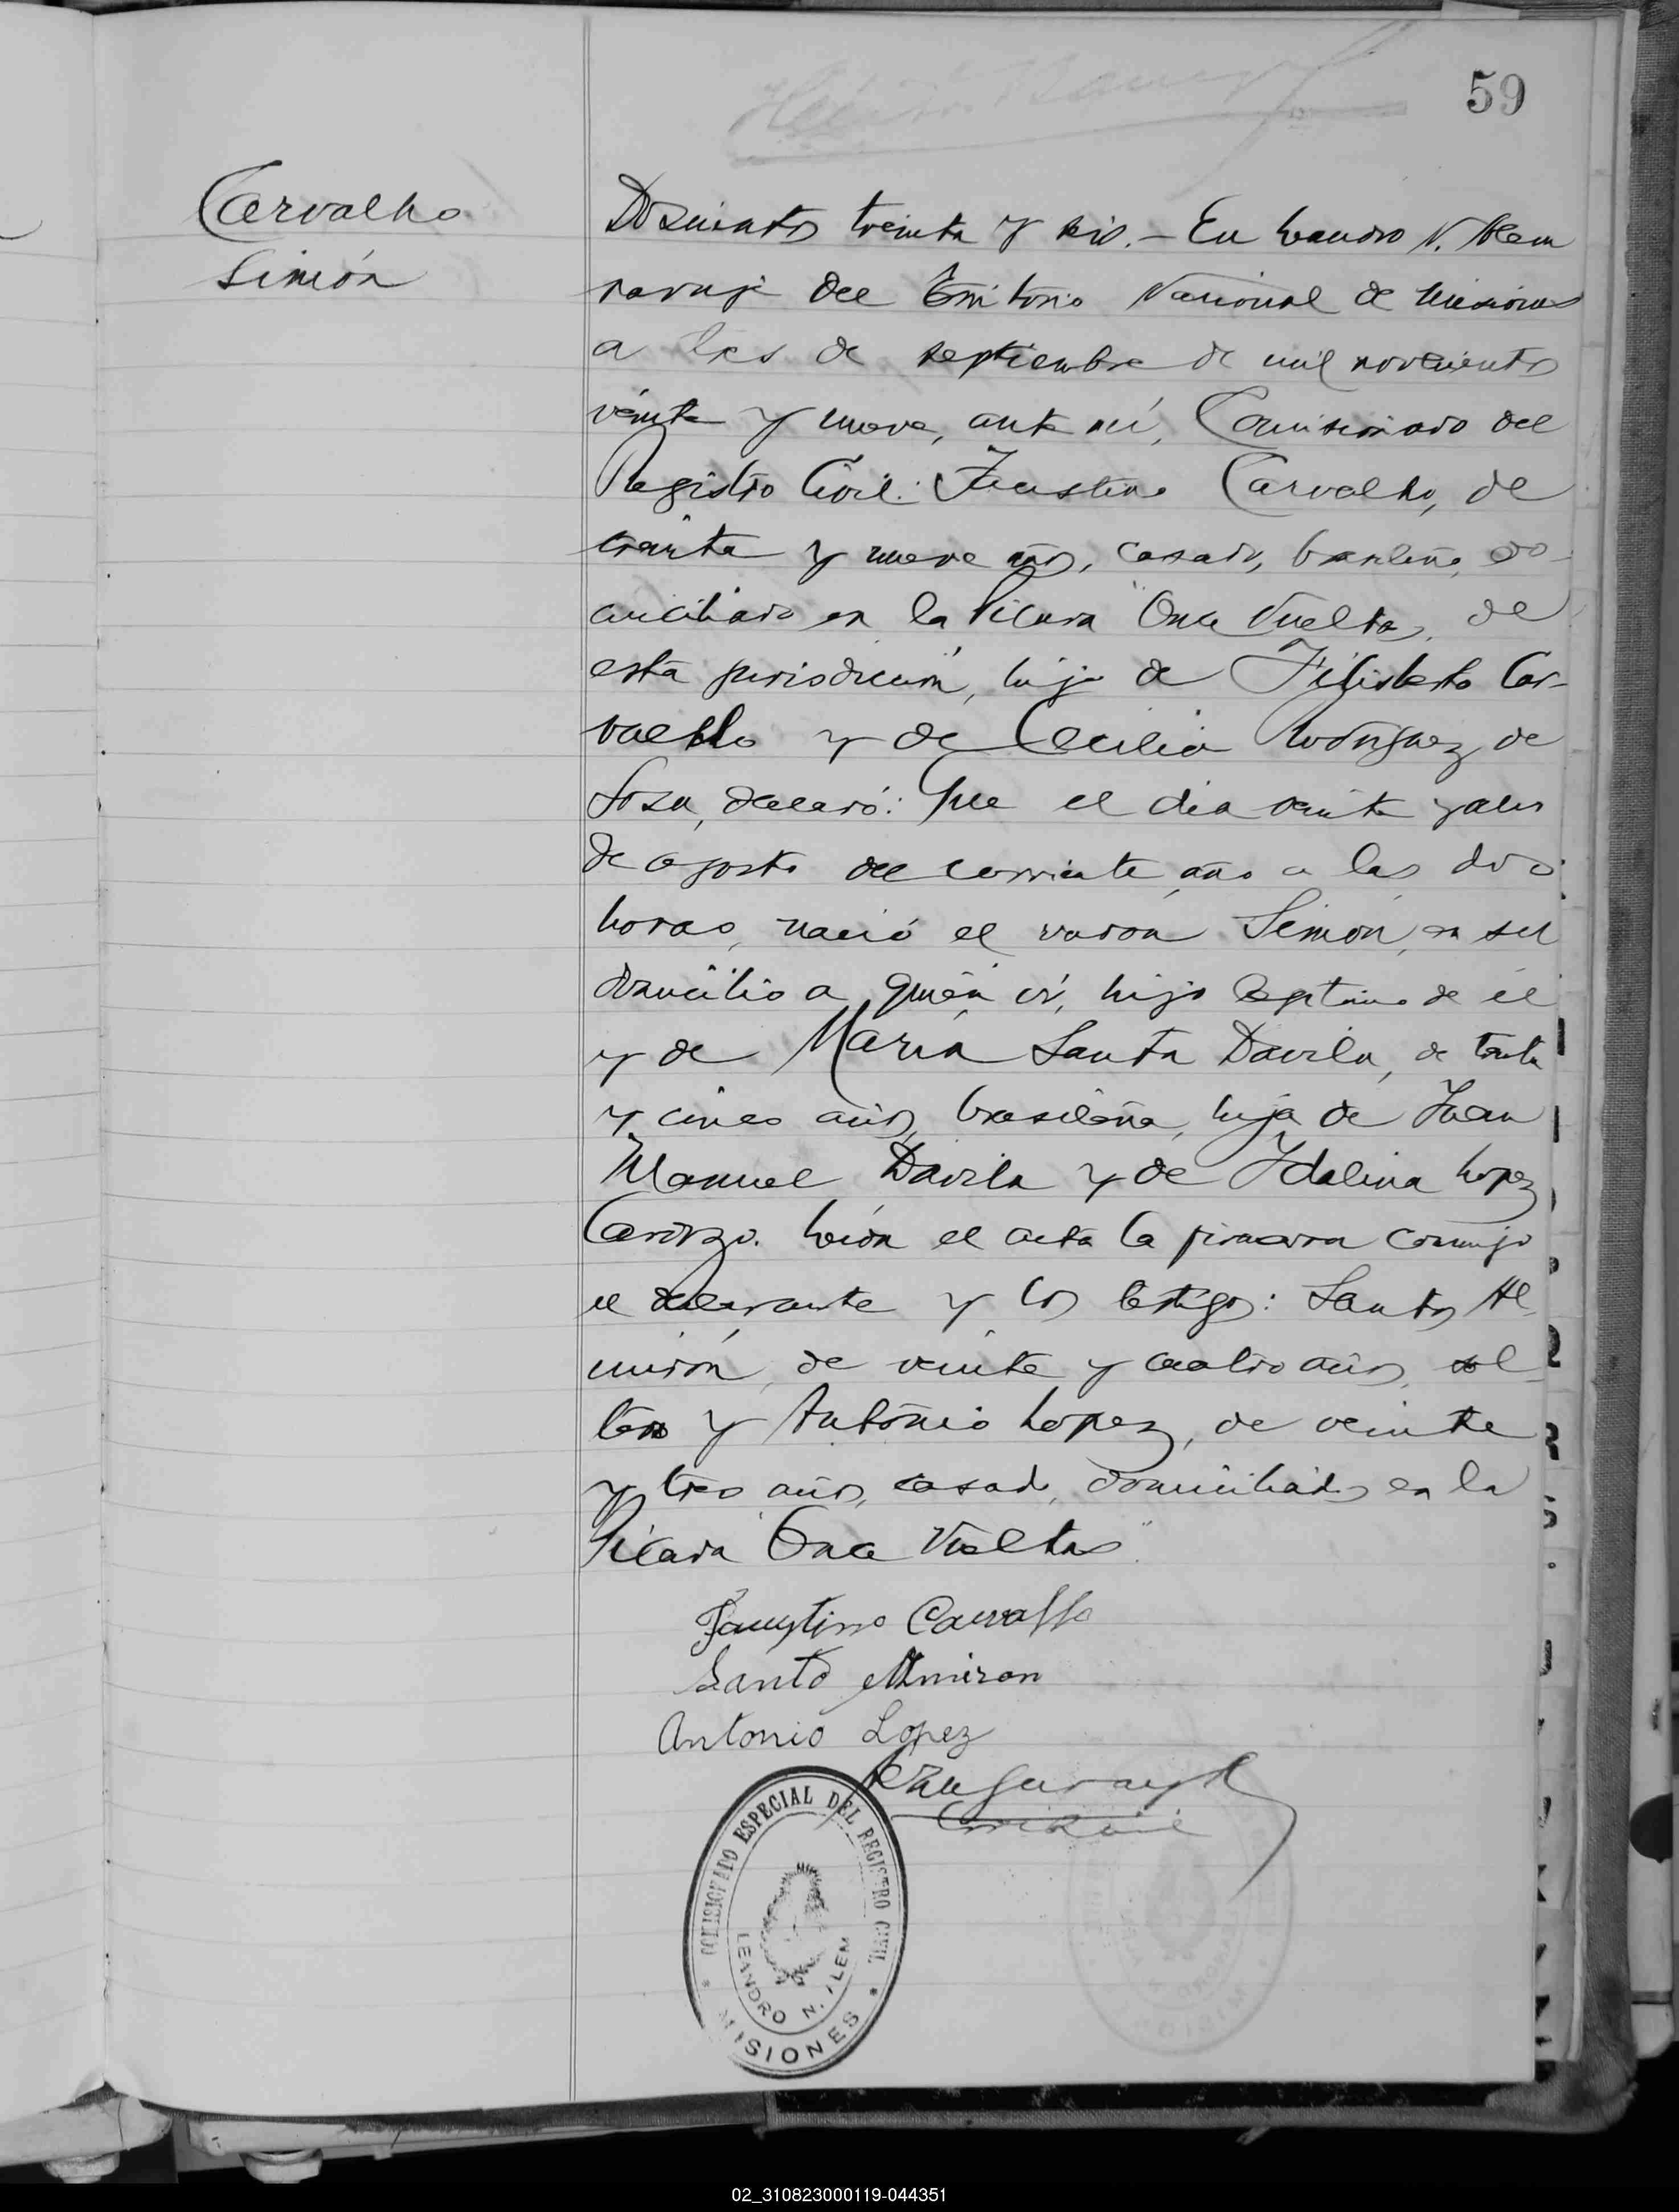 59
Carvalho
Simón
Doscientos treinta y seis.- En Leandro N. Alem
paraje del Territorio Nacional de Misiones
a tres de septiembre de mil novecientos
veinte y nueve, ante mí, Comisionado del
Registro Civil: Faustino Carvalho, de
treinta y nueve años, casado, brasileño, do-
miciliado en la Picada "Once Vueltas", de
esta jurisdicción, hijo de Filisberto Car-
valho y de Cecilia Rodriguez de
Sosa, declaró: Que el dia veinte y
de agosto del corriente año a las dos
horas, nació el varón Simón, en su
domicilio a quién ví, hijo septimo de él
y de María Santa Davila, de treinta
y cinco años, brasileña, hija de Juan
Manuel Davila y de Idalina Lopez
Leída el acta la firmaron conmigo
el declarante y los testigos: Santos Al-
mirón, de veinte y cuatro años, sol-
tero y Antonio Lopez, de veinte
y tres años, casado, domiciliados en la
Picada "Once Vueltas"
Faustino Carvallo
Santo Almiron
Antonio Lopez
COMISIONADO ESPECIAL DEL REGISTRO CIVIL
LEANDRO N. ALEM
* MISIONES *
02_310823000119-044351